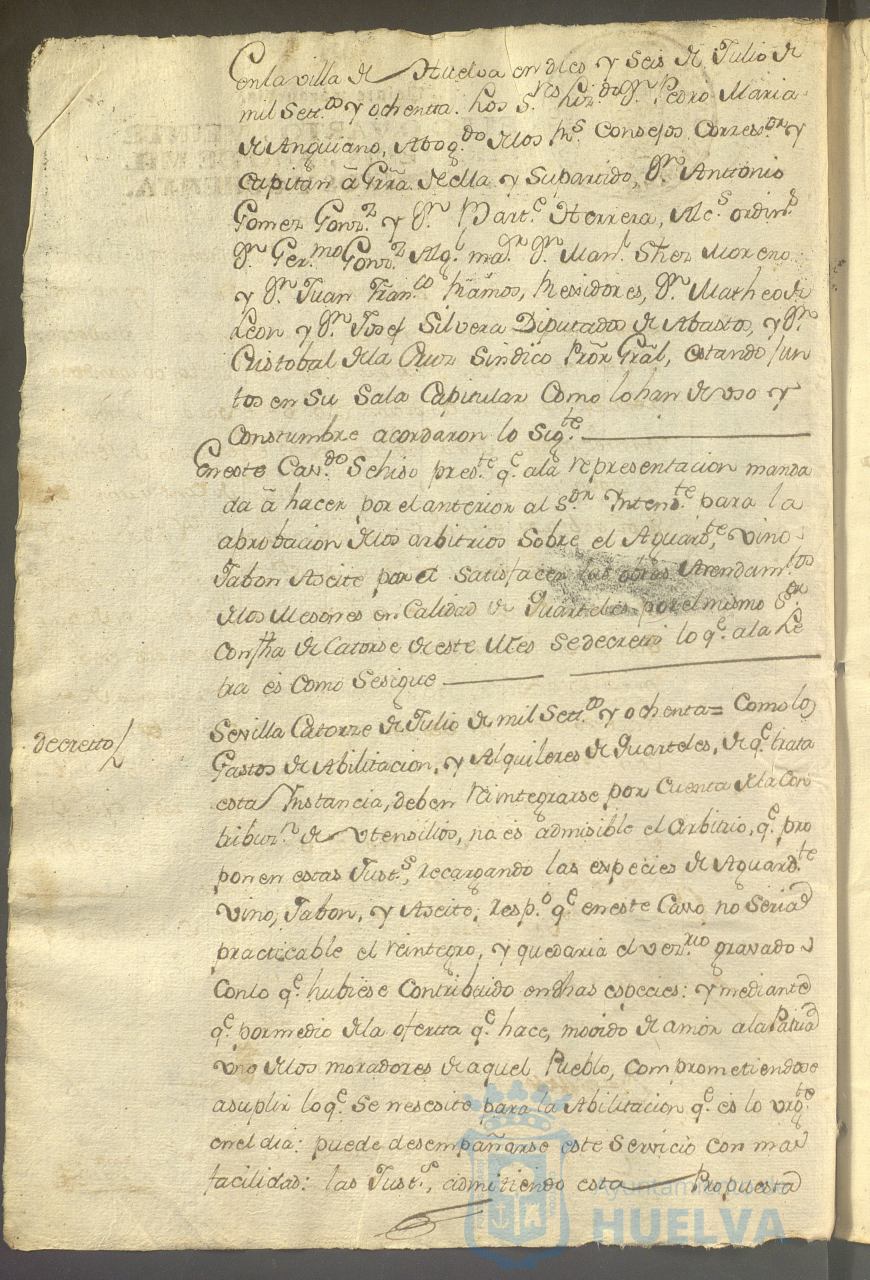 En la villa de Huelva en dies y Seis de Julio de
mil Setec.tos y ochenta. los S.res Liz.do D.n Pedro Maria
de Anguiano, Abog.do de los R.s Consejos Corresx.or y
Capitan â Grrâ de ella y Supartido, D.n Anttonio
Gomez Gonz.z y D.n Bart.e Herrera, Alc.s ordin.s
D.n Ger.mo Gonz.z Alg.l ma.r D.n Man.l Shez Moreno
y D.n Juan Fran.co Ramos, Rexidores, D.n Matheo de
Leon y D.n Josef Silvera Diputados de Abasto, y D.n
Cristobal de la Cruz Sindico Pror Gral, estando jun
tos en Su Sala Capitular Como lo han de vso y
Constumbre acordaron lo Sig.te
En este Cav.do Se hiso pres.te q.e ala representacion manda
da â hacer por el anterior al S.or Intend.te para la
aprobacion de los arbitrios Sobre el Aguard.te, vino
Jabon Aseite para Satisfacer las obras Arendam.tos
de los Mesones en Calidad de Quarteles por el mismo S.or
Con fha de Catorse de este Mes Se decreto lo q.e ala Le
tra es Como Se sigue
decretto
Sevilla Catorze de Julio de mil Setec.tos y ochenta= Como los
Gastos de Abilitacion, y Alquileres de Quarteles, de q.e trata
esta Instancia, deben reintegrarse por Cuenta de la Con
tribuz.n de Vtensilios, no es admisible el arbitrio, q.e pro
ponen estas Just.s, recargando las especies de Aguard.te
Vino, Jabon, y Aseite, resp.to q.e en este Caso no Seria
practicable el reintegro, y quedaria el vez.rio gravado
Con lo q.e hubiese Contribuido en dhas especies: y mediante
q.e por medio de la oferta q.e hace, movido de amor ala Patria
Vno de los moradores de aquel Pueblo, comprometiendose
a suplir lo q.e Se nesesite para la Abilitacion q.e es lo vrg.te
en el dia: puede desempañarse este Servicio con mas
facilidad: las Just.s, admitiendo esta Propuesta
Ayuntamiento de
HUELVA